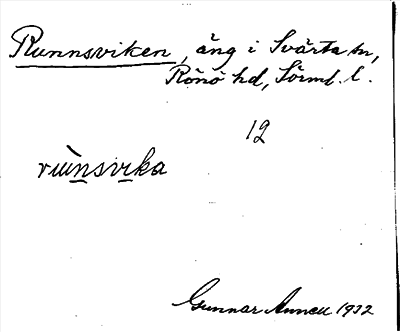 Runnsviken, äng i Svärta sn,
Rönö hd, Sörml. l.
12
ruùnsvika
Gunnar 1932